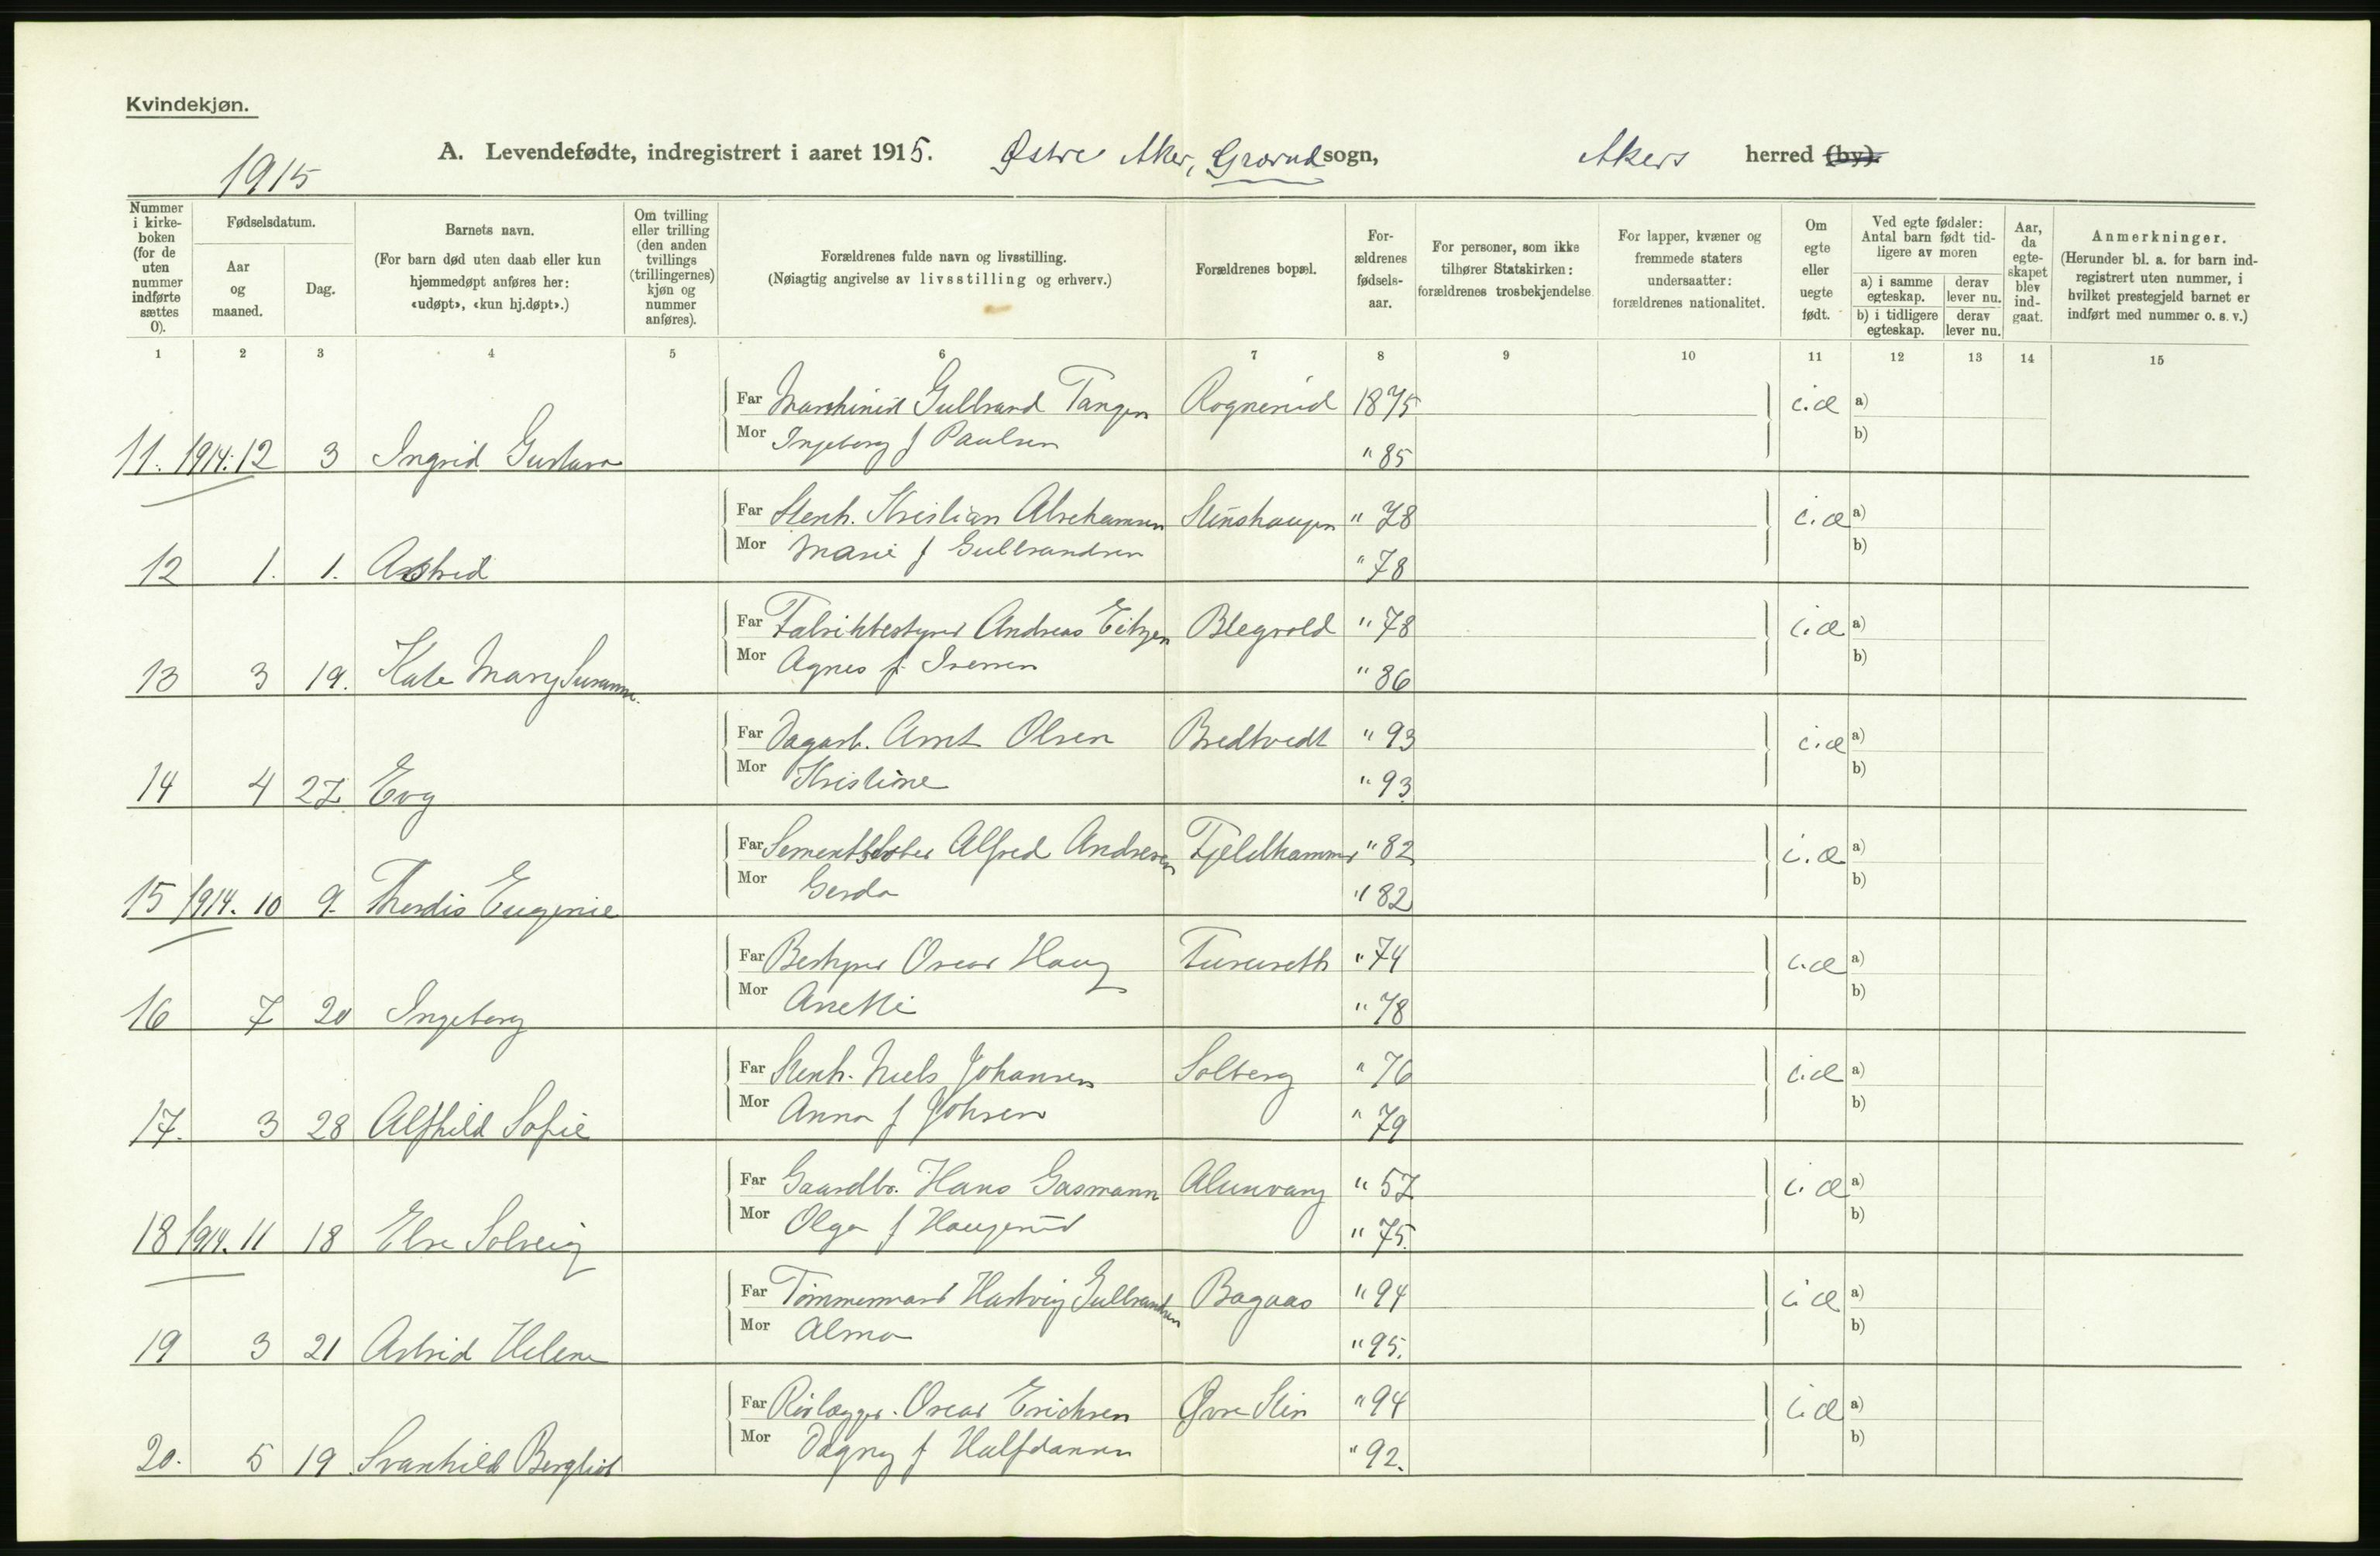 Kvindekjøn.
A. Levendefødte, indregistrert i aaret 1915. Østre Aker, Grorud sogn, Akers herred (by).
1915
Nummer i kirke-boken (for de uten nummer indførte sættes 0).
Fødselsdatum.
Aar og maaned.
Dag.
Barnets navn.
(For barn død uten daab eller kun hjemmedøpt anføres her: «udøpt», «kun hj.døpt».)
Om tvilling eller trilling (den anden tvillings (trillingernes) kjøn og nummer anføres).
Forældrenes fulde navn og livsstilling.
(Nøiagtig angivelse av livsstilling og erhverv.)
Forældrenes bopæl.
For-ældrenes fødsels-aar.
For personer, som ikke tilhører Statskirken: forældrenes trosbekjendelse.
For lapper, kvæner og fremmede staters undersaatter: forældrenes nationalitet.
Om egte eller uegte født.
Ved egte fødsler: Antal barn født tid-ligere av moren
a) i samme egteskap. derav lever nu.
b) i tidligere egteskap. derav lever nu.
Aar, da egte-skapet blev ind-gaat.
Anmerkninger.
(Herunder bl. a. for barn ind-registrert uten nummer, i hvilket prestegjeld barnet er indført med nummer o. s. v.)
1 2 3 4 5 6 7 8 9 10 11 12 13 14 15
Far Maschinist Gulbrand Tangen Rognerud 1875 i.æ a)
Mor Ingeborg f Paulsen "85 b)
11. 1914.12 3 Ingrid Gustava
Far Stenh. Kristian Abrahamsen Stenshaugen "78 i.æ a)
Mor Marie f Gulbrandsen "78 b)
12 1. 1. Astrid
Far Fabrikbestyrer Andreas Eitzen Blegvold "78 i.æ a)
Mor Agnes f. Iversen "86 b)
13 3 19. Kate Mary Susanne.
Far Dagarb. Arnt Olsen Bredtvedt "93 i.æ a)
Mor Kristine "93 b)
14 4 27. Evy
Far Alfred Andresen Fjeldhammer "82 i.æ a)
Mor Gerda "82 b)
15 1914. 10 9. Thordis Eugenie
Far Bestyrer Oscar Haug Furuseth "74 i.æ a)
Mor Anette "78 b)
16 7 20 Ingeborg
Far Stenh. Niels Johansen Solberg "76 i.æ a)
Mor Anna f Johnsen "79 b)
17. 3 28 Alfhild Sofie
Far Gaardbr. Hans Gasmann Alunvang "57 i.æ a)
Mor Olga f Haugerud "75. b)
18 1914. 11 18 Else Solveig
Far Tømmermand Hartvig Gulbrandsen Bagaas "94 i.æ a)
Mor Alma "95. b)
19 3 21 Astrid Helene
Far Rørlægger. Oscar Erichsen Øvre Sten "94 i.æ a)
Mor Dagny f Halfdansen "92. b)
20. 5 19 Svanhild Bergliot